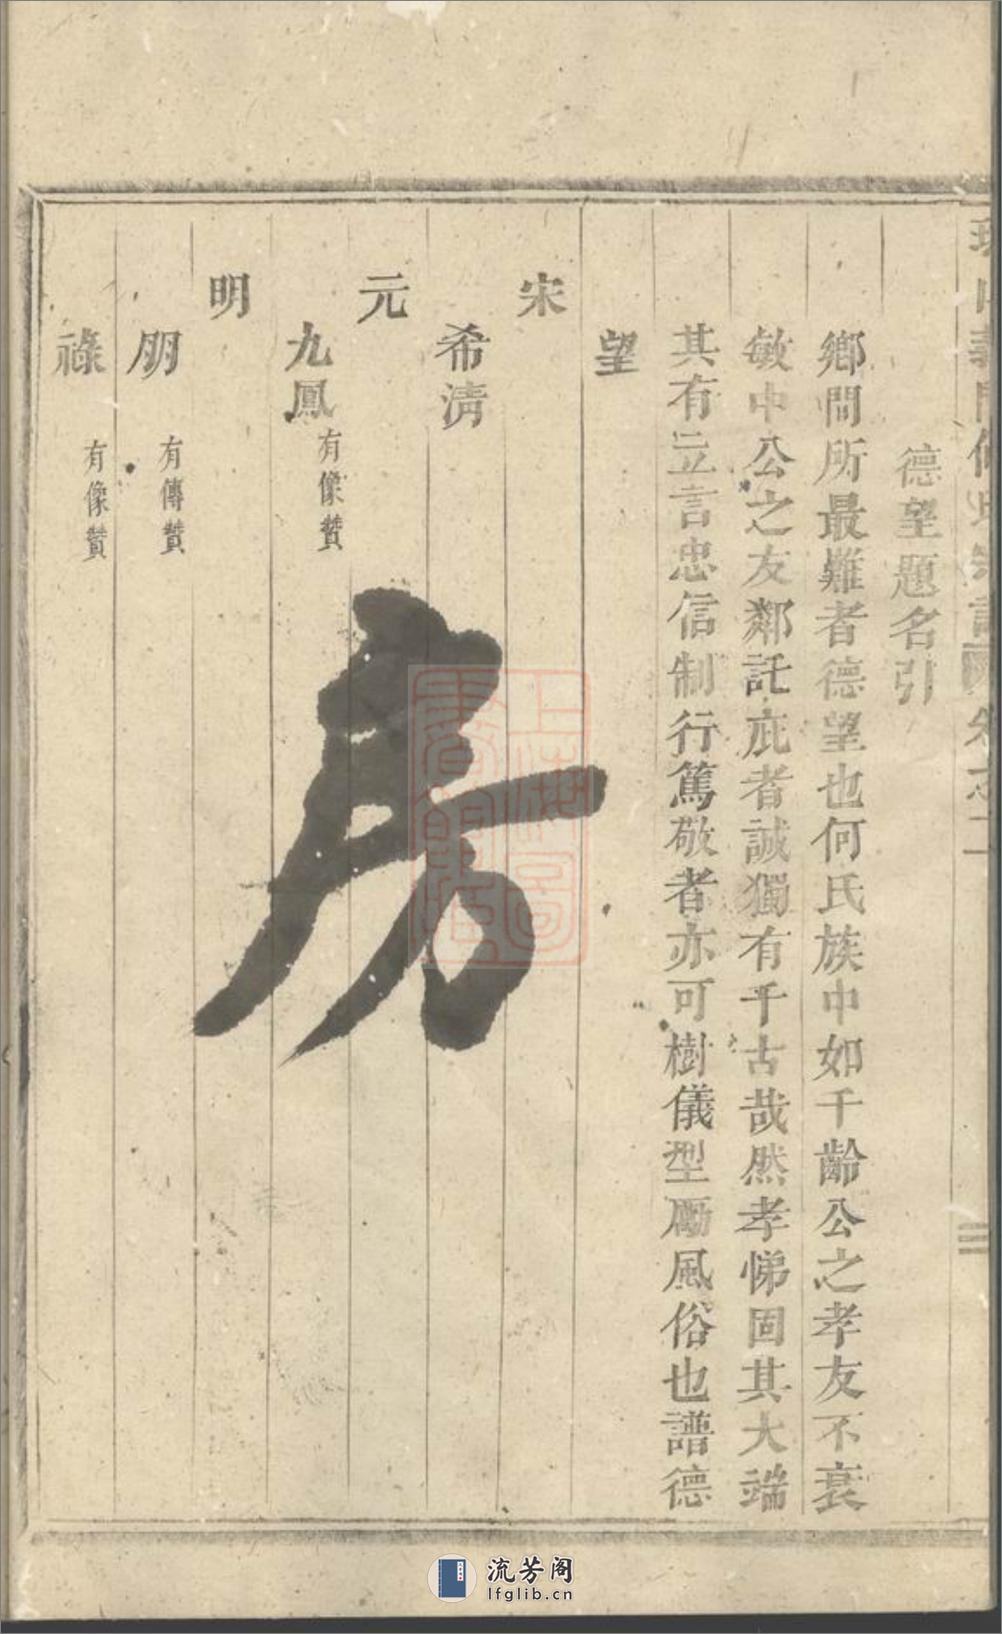 德望題名引
鄉閭所最難者德望也何氏族中如千齡公之孝友不衰
敏中公之友鄰託庇者誠獨有千古哉然孝悌固其大端
其有立言忠信制行篤敬者亦可樹儀型勵風俗也譜德
望
宋
希淸
元
九鳳 有像贊
明
朋 有傳贊
祿 有像贊
房
卷之二
上海圖書館藏
流芳阁
lfglib.cn